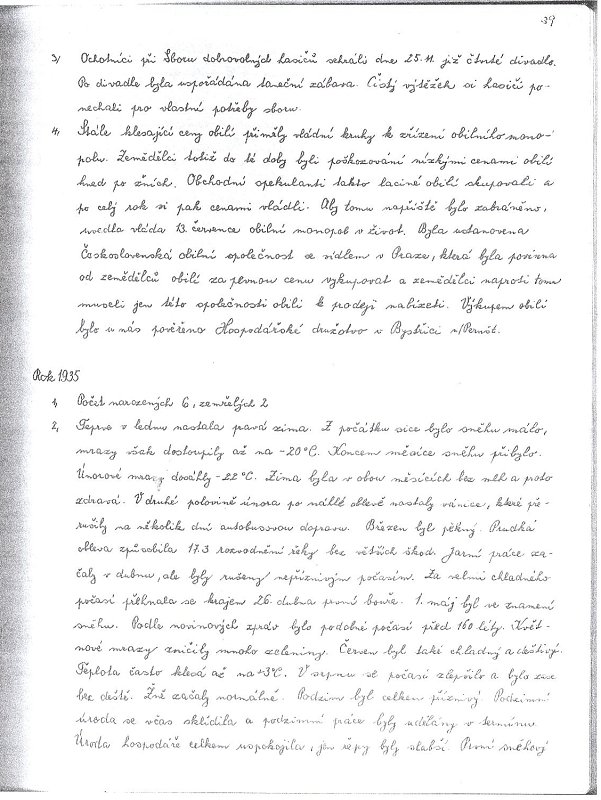 39
3, Ochotníci při Sboru dobrovolných hasičů sehráli dne 25.11. již čtvrté divadlo.
Po divadle byla uspořádána taneční zábava. Čistý výtěžek si hasiči po-
nechali pro vlastní potřeby sboru.
4, Stále klesající ceny obilí přiměly vládní kruhy k zřízení obilního mono-
polu. Zemědělci totiž do té doby byli poškozováni nízkými cenami obilí
hned po žních. Obchodní spekulanti takto laciné obilí skupovali a
po celý rok si pak cenami vládli. Aby tomu napříště bylo zabráněno,
uvedla vláda 13. července obilní monopol v život. Byla ustanovena
Československá obilní společnost se sídlem v Praze, která byla povinna
od zemědělců obilí za pevnou cenu vykupovat a zemědělci naproti tomu
museli jen této společnosti obilí k prodeji nabízeti. Výkupem obilí
bylo u nás pověřeno Hospodářské družstvo v Bystřici n/Pernšt.
Rok 1935
1, Počet narozených 6, zemřelých 2
2, Teprve v lednu nastala pravá zima. Z počátku sice bylo sněhu málo,
mrazy však dostoupily až na -20°C. Koncem měsíce sněhu přibylo.
Únorové mrazy dosáhly -22°C. Zima byla v obou měsících bez mlh a proto
zdravá. V druhé polovině února po náhlé oblevě nastaly vánice, které pře-
rušily na několik dní autobusovou dopravu. Březen byl pěkný. Prudká
obleva způsobila 17.3 rozvodnění řeky bez větších škod. Jarní práce za-
čaly v dubnu, ale byly rušeny nepříznivým počasím. Za velmi chladného
počasí přehnala se krajem 26. dubna první bouře. 1. máj byl ve znamení
sněhu. Podle novinových zpráv bylo podobné počasí před 160 léty. Květ-
nové mrazy zničily mnoho zeleniny. Červen byl také chladný a deštivý.
Teplota často klesá až na +3°C. V srpnu se počasí zlepšilo a bylo zase
bez deště. Žně začaly normálně. Podzim byl celkem příznivý. Podzimní
úroda se včas sklidila a podzimní práce byly udělány v termínu.
Úroda hospodáře celkem uspokojila, jen řepy byly slabší. První sněhový